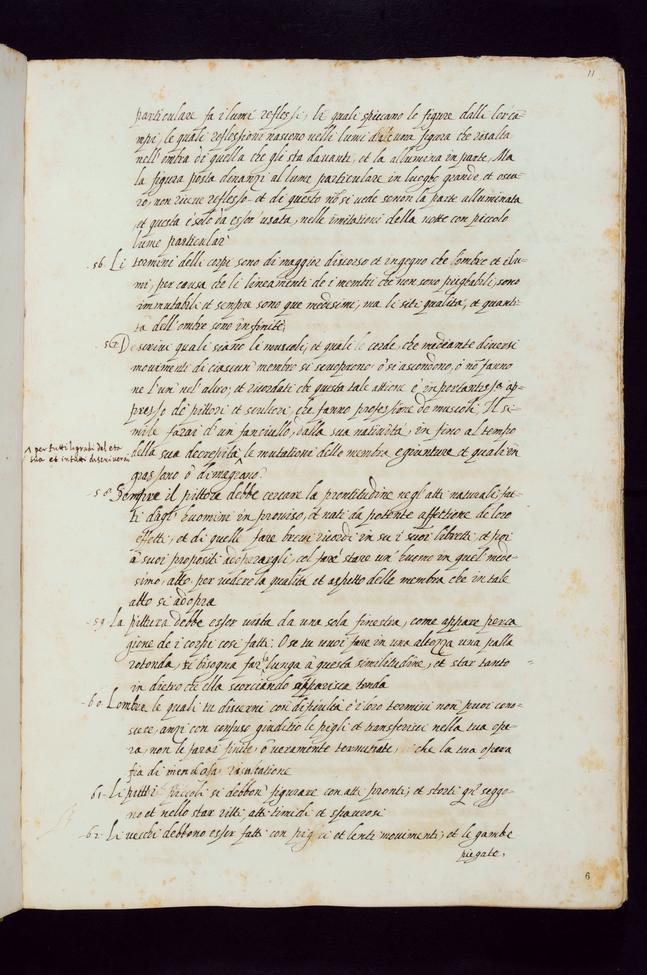 11
particulare fa i lumi reflessi, li quali spiccano le figure dalli lor ca=
mpi, le quali reflessioni nascono nelli lumi d'alcuna figura che resalta
nell'ombra di quella che gli sta davanti, et la allumina in parte, Ma
la figura posta denanzi al lume particulare in luogho grande, et oscu=
ro, non riceve reflesso et di questo nō si vede senon la parte alluminata
et questa è solo da esser' usata, nelle imitationi della notte con piccolo
lume particular'
56. Li termini delli corpi sono di maggior discorso et ingegno che l'ombre et i lu=
mi, per causa che li lineamenti de i membri che non sono piegabili, sono
immutabili et sempre sono que medesimi, ma le siti qualità, et quanti=
tà dell'ombre sono infinite,
57. Descrivi quali siano li muscoli, et quali le corde, che mediante diversi
movimenti di ciascun' membro si scuoprono o si ascondono, ò nō fanno
ne l'un' nel' altro, et ricordati che questa tale attione è importantissa ap=
presso de pittori et scultori, che fanno professione de muscoli. Il si=
mile farai d'un fanciullo, dalla sua natività, in fino al tempo
^ per tutti li gradi del eta
sua et in tutti discriverai
della sua decrepità, le mutationi delle membra e giunture et quali in
grassano ò dimagrano^
58. Sempre il pittore debbe cercare la prontitudine negl'atti naturali, fat=
ti dagli huomini in proviso, et nati da potente affettione de loro
effetti, et di quelle fare brevi ricordi in su i suoi libretti, et poi
à suoi propositi adoperargli, col fare' stare un' huomo in quel mede=
simo, atto, per vedere la qualità et aspetto delle membra che in tale
atto si adopra
59. La pittura debbe esser vista da una sola finestra, come appare per ca
gione de i corpi cosi fatti. O se tu vuoi fare in una altezza una palla
rotonda, ti bisogna farla lunga à questa similitudine, et star tanto
in dietro che ella scorciando apparisca tonda
60. L'ombre le quali tu discerni con dificultà è i loro termini non puoi cono=
scere, anzi con confuso giuditio le pigli et transferisci nella tua ope=
ra, non le farai finite, ò veramente terminate, che la tua opera
fia di
61. Li putti piccoli si debbon' figurare con atti pronti, et storti qn' seggo=
no et nello star ritti, atti timidi et spaurosi
62. Li vecchi debbono esser fatti con pigri et lenti movimenti, et le gambe
piegate,
6